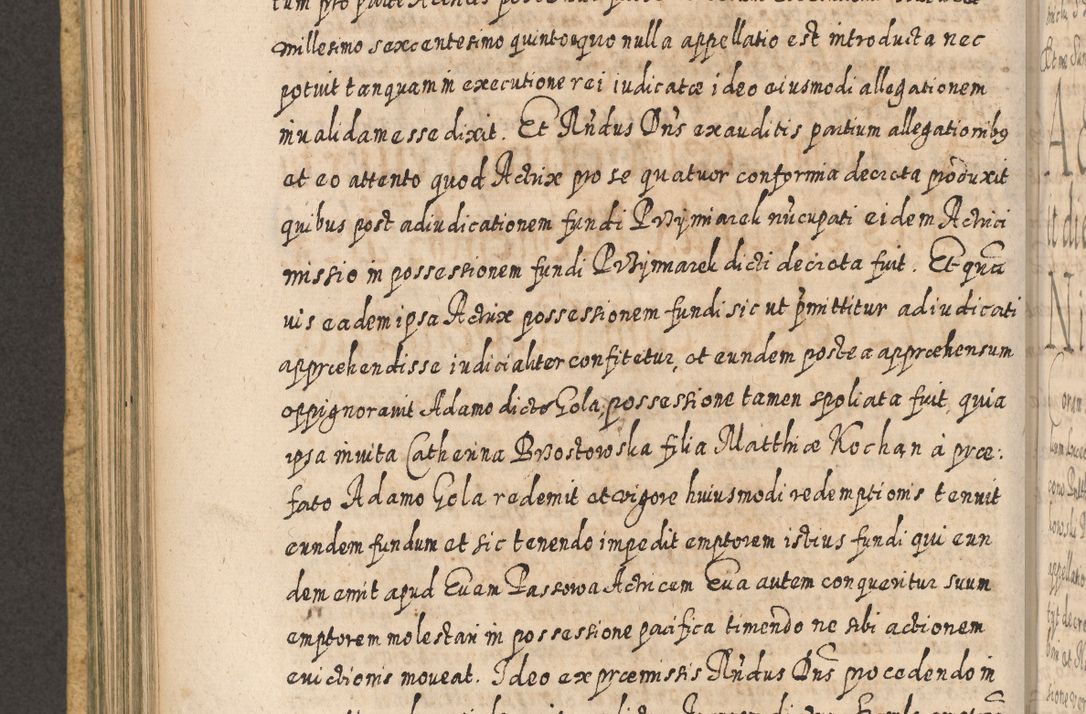 millesimo sexcentesimo quinto quo nulla appellatio est introducta nec
potuit tanquam in executione rei iudicatæ ideo eiusmodi allegationem
inualidam esse dixit. Et Rñdus Dñs exauditis partium allegationibꝰ
et eo attento quod Actrix pro se quatuor conformia decreta produxit
quibus post adiudicationem fundi Przÿmiarek nũcupati eidem Actrici
missio in possessionem fundi Przÿmiarek dicti decreta fuit. Et quã
uis eadem ipsa Actrix possessionem fundi sic ut p̃mittitur adiudicati
apprœhendisse iudicialiter confitetur, et eundem postea apprœhensum
oppignorauit Adamo dicto Gola, possessione tamen spoliata fuit, quia
ipsa inuita Catherina Brzostowska filia Matthiæ Kochan à præ:
fato Adamo Gola redemit et vigore huiusmodi redemptionis tenuit
eundem fundum et sic tenendo impedit emptorem istius fundi qui eun
dem emit apud Euam Passowa Actricem Eua autem conqueritur suum
emptorem molestari in possessione pacifica timendo ne sibi actionem
euictionis moueat. Ideo ex præmissis Rñdus Dñs procedendo in